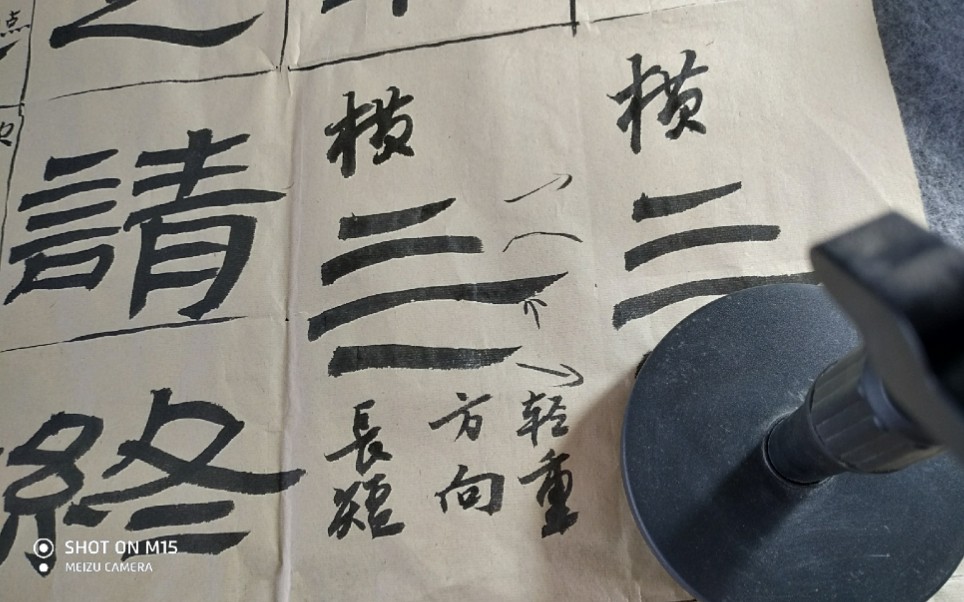 点
請
終
横
横
長短
方向
轻重
SHOT ON M15
MEIZU CAMERA